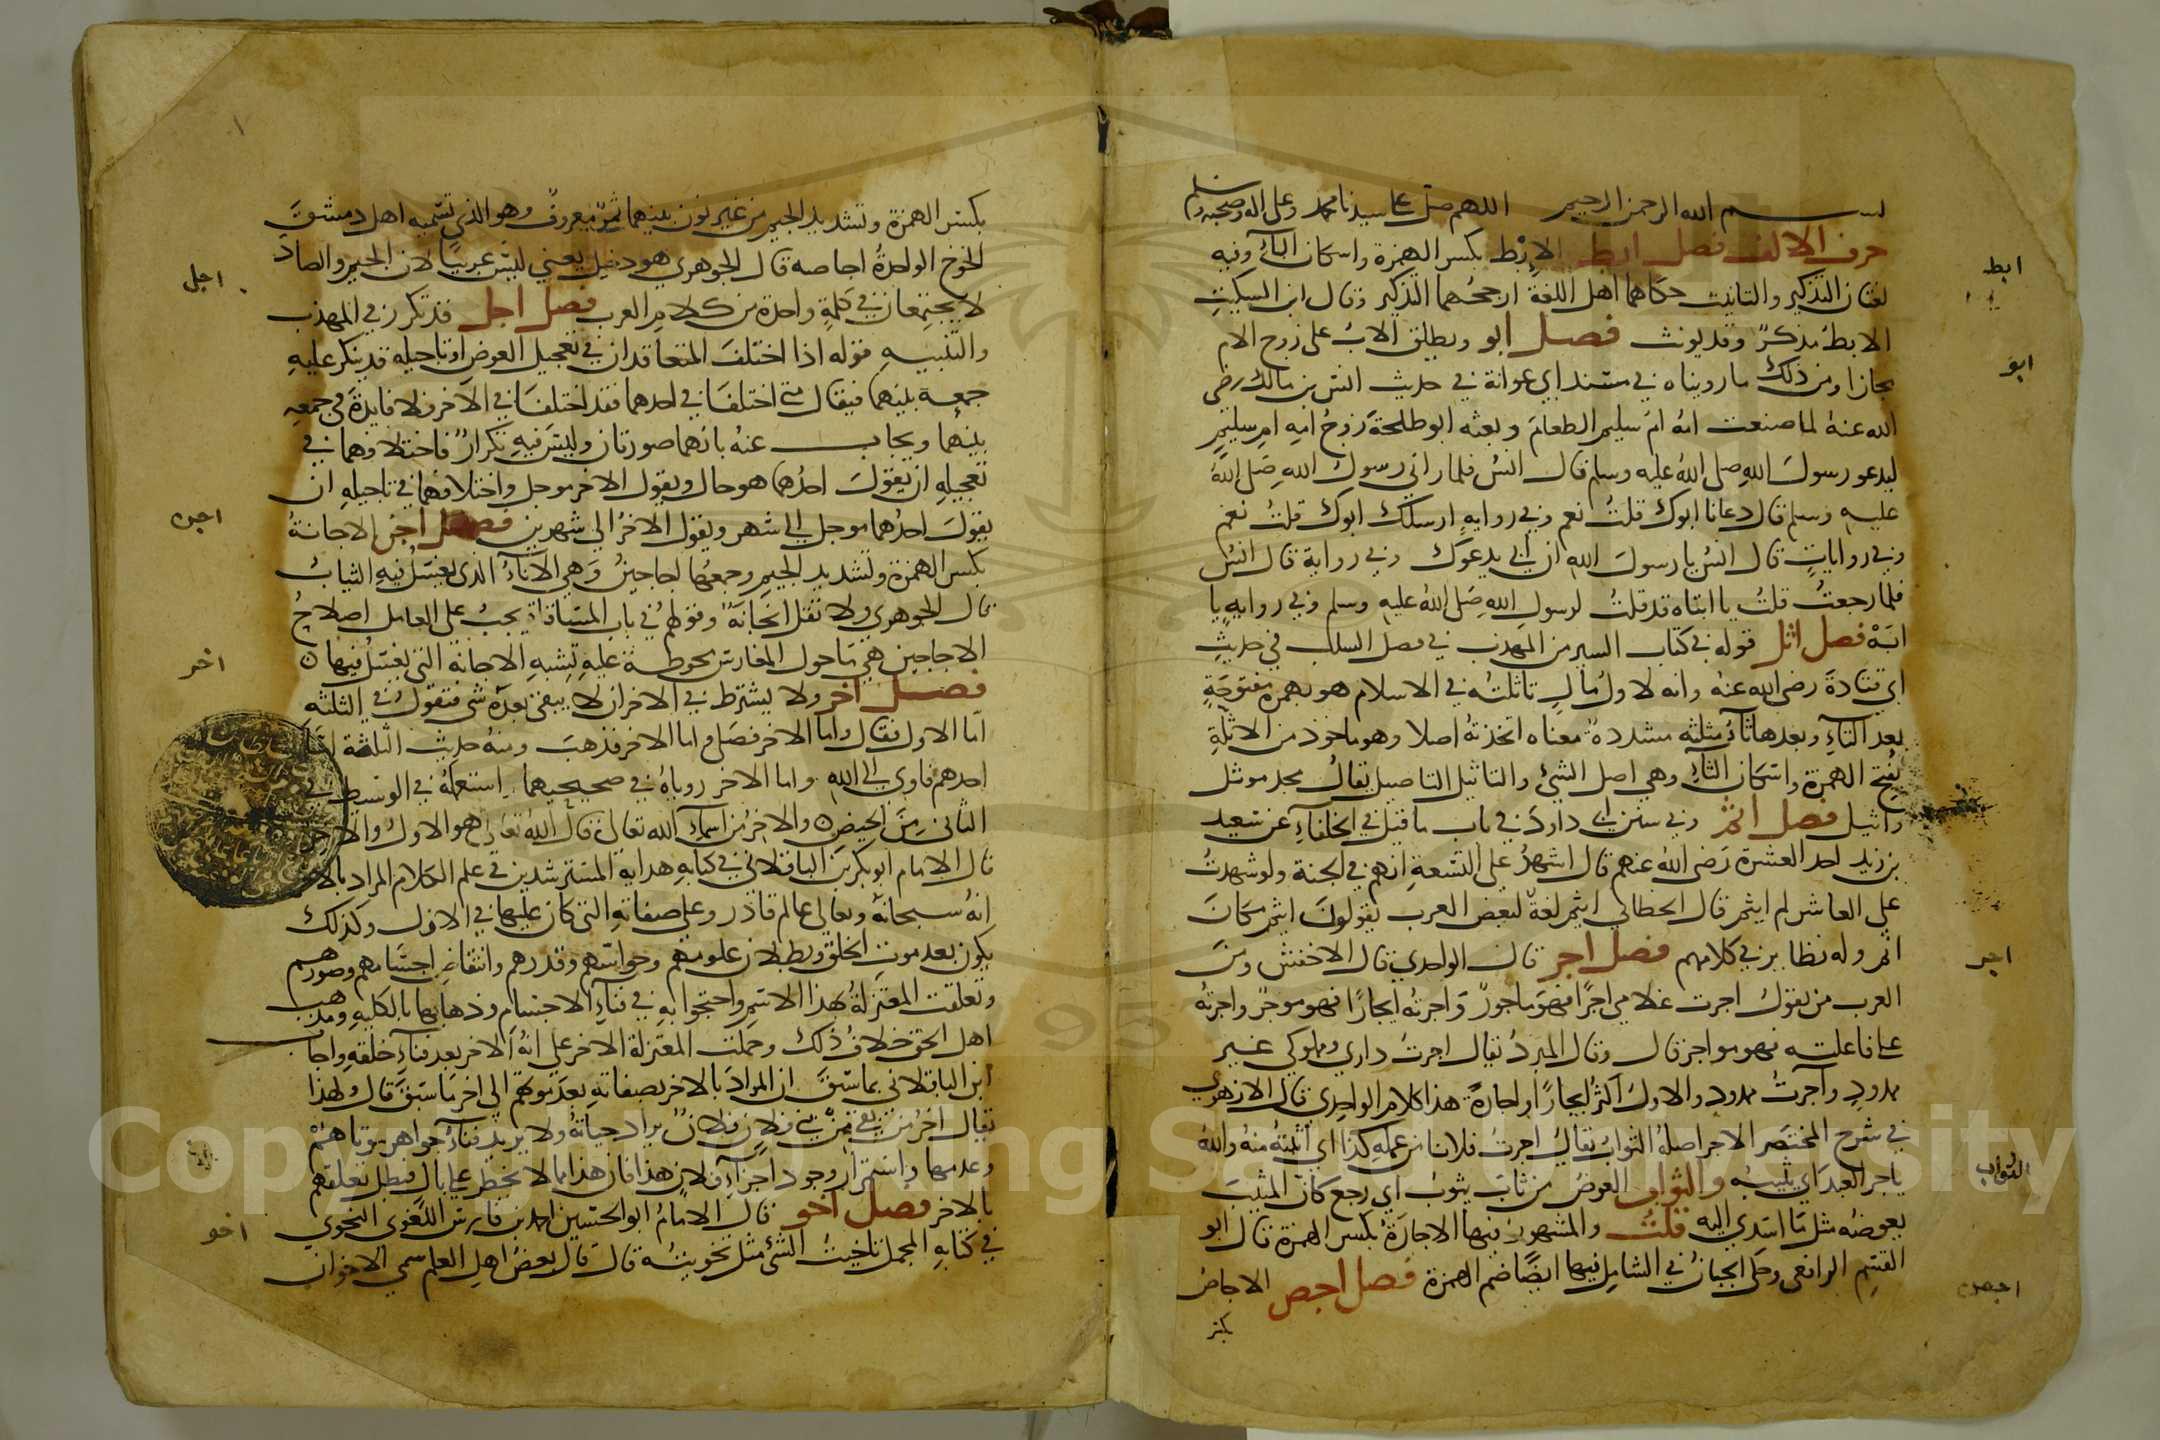 بســـم الله الرحمن الرحيم اللهم صل على سيدنا محمد وعلى اله وصحبه وسلم
حرف الالف فصل ابط الإبْط بكسر الهمزة واسكان الباء وفيه
لغتان التذكير والتانيث حكاهما اهل اللغة ارجحهما التذكير وقال ابن السكيت
الابط مذكر وقد يونث فصل ابو ويطلق الاب على زوج الام
مجازا ومن ذلك ما رويناه في مسند ابي عوانة في حديث انس بن مالك رضي
الله عنه لما صنعت امه ام سليم الطعام وبعثه ابو طلحة زوج امه ام سليم
ليدعو رسول الله صلى الله عليه وسلم قال انس فلما راني رسول الله صلى الله
عليه وسلم قال دعانا ابوك قلت نعم وفي رواية ارسلك ابوك قلت نعم
وفي روايات قال انس يا رسول الله ان ابي يدعوك وفي رواية قال انس
فلما رجعت قلت يا ابتاه قد قلت لرسول الله صلى الله عليه وسلم وفي رواية يا
ابَهْ فصل اثل قوله في كتاب السير من المهذب في فصل السلب في حديث
ابي قتادة رضي الله عنه وانه لاول مال تاثلته في الاسلام هو بهمزة مفتوحة
بعد التاء وبعدها ثاء مثلثه مشددة معناه اتخذته اصلا وهو ماخوذ من الاثلة
بفتح الهمزة واسكان الثاء وهي اصل الشيء والتاثيل التاصيل يقال مجد موثل
واثيل فصل اثم وفي سنن ابي داود في باب ما قيل في الخلفاء عن سعيد
بن زيد احد العشرة رضي الله عنهم قال اشهد على التسعة انهم في الجنة ولو شهدت
على العاشر لم ايثم قال الخطابي ايثم لغة لبعض العرب يقولون ايثم مكان
اثم وله نظاير في كلامهم فصل اجر قال الواحدي قال الاخفش ومن
العرب من يقول اجرت غلامي اجرًا فهو ماجور وَاجرته ايجارًا فهو موجر واجرته
على فاعلته فهو مواجر قال وقال المبرد يقال اجرت داري ومملوكي غير
ممدود وآجرت ممدود والاول اكثر ايجارًا واجارة هذا كلام الواحدي قال الازهري
في شرح المختصر الاجر اصله الثواب يقال اجرت فلانا من عمله كذا اي اثبته منه والله
ياجر العبد اي يثيبه والثواب العوض من ثاب يثوب اي رجع كان المثيب
يعوضه مثل ما اسدي اليه قلت والمشهور فيها الاجارة بكسر الهمزة قال ابو
القسم الرافعي وحكى الجبان في الشامل فيها ايضًا ضم الهمزة فصل اجص الاجاص
بكسر
ابط
ابو
اجر
الثواب
اجص
بكسر الهمزة وتشديد الجيم من غير نون بينهما ثمر معروف وهو الذي تسميه اهل دمشق
الخوخ الواحدة اجاصه قال الجوهري هو دخيل يعني ليس عربيا لان الجيم والصاد
لا يجتمعان في كلمة واحدة من كلام العرب فصل اجل قد تكرر في المهذب
والتنبيه قوله اذا اختلف المتعاقدان في تعجيل العوض او تاجيله قد ينكر عليه
جمعه بينهما فيقال متى اختلفا في احدهما فقد اختلفا في الآخر فلا فايدة في جمعه
بينهما ويجاب عنه بانهما صورتان وليس فيه تكرار فاختلافهما في
تعجيله ان يقول احدهما هو حال ويقول الاخر موجل واختلافهما في تاجيله ان
يقول احدهما موجل الى شهر ويقول الاخر الى شهرين فصل اجن الاجانة
بكسر الهمزة وتشديد الجيم وجمعها اجاجين وَهي الاناء الذي يغسل فيه الثياب
قال الجوهري ولا تقل انجانة وقولهم في باب المساقاة يجب على العامل اصلاح
الاجاجين هي ما حول المغارس محوطة عليه تشبه الاجانة التي يغسل فيها
فصل اخر ولا يشترط في الاخر ان لا يبقى بعده شي فتقول في الثلثة
اما الاول فقال واما الاخر فصلى واما الاخر فذهب ومنه حديث الثلثة اما
احدهم فاوى الى الله واما الاخر روياه في صحيحيهما استعمله في الوسيط في
الثاني من الحيض والاخر من اسماء الله تعالى قال الله تعالى هو الاول والاخر
قال الامام ابو بكر بن الباقلاني في كتابه هداية المسترشدين في علم الكلام المراد بالاخر
انه سبحانه وتعالى عالم قادر وعلى صفاته التي كان عليها في الازل وكذلك
يكون بعد موت الخلق وبطلان علومهم وحواسهم وقدرهم وانتقاض اجسامهم وصورهم
وتعلقت المعتزلة بهذا الاسم واحتجوا به في فناء الاجسام وذهابها بالكلية ومذهب
اهل الحق خلاف ذلك وحملت المعتزلة الاخر على انه الاخر بعد فناء خلقه واجاب
ابن الباقلاني بما سبق ان المراد بالاخر بصفاته بعد موتهم الى اخر ما سبق قال ولهذا
يقال اخر من بقي من بني فلان فلان يراد حياته ولا يريد فناء جواهر موتاهم
وعدمها واستمرار وجود اجزاء فلان هذا فان هذا مما لا يخطر على بال فبطل تعلقهم
بالاخر فصل اخو قال الامام ابو الحسين احمد بن فارس اللغوي النحوي
في كتابه المجمل تاخيت الشيء مثل تحريته قال قال بعض اهل العلم سمي الاخوان
اجل
اجن
اخر
اخو
Copyright © King Saud University
1957